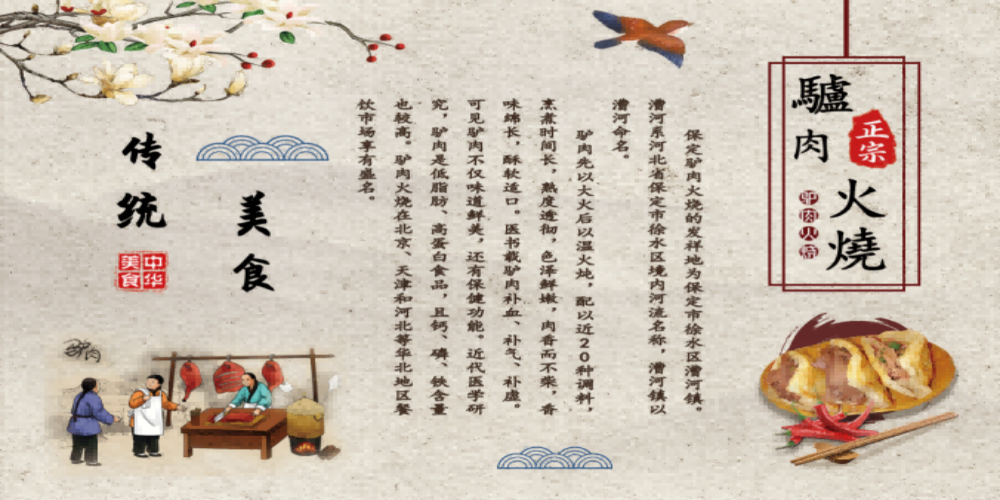 驢肉火燒
正宗
驴肉火烧
保定驴肉火烧的发祥地为保定市徐水区漕河镇。
漕河系河北省保定市徐水区境内河流名称，漕河镇以
漕河命名。
驴肉先以大火后以温火炖，配以近20种调料，
烹煮时间长，熟度透彻，色泽鲜嫩，肉香而不柴，香
味绵长，酥软适口。医书载驴肉补血、补气、补虚。
可见驴肉不仅味道鲜美，还有保健功能。近代医学研
究，驴肉是低脂肪、高蛋白食品，且钙、磷、铁含量
也较高。驴肉火烧在北京、天津和河北等华北地区餐
饮市场享有盛名。
美食
传统
中华
美食